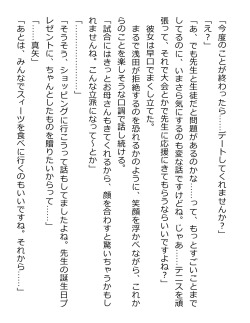 今度のことが終わったら……デートしてくれませんか？」
「えっ？」
「あ、でも先生と生徒だと問題があるのかな……って、もっとすごいことまで
してるのに、いまさら気にするのも変な話ですけどね。じゃあ……テニスを頑
張って、それで大会とかで先生に応援にきてもらうならいいですよね？」
　彼女は早口でまくし立てた。
　まるで浅田が拒絶するのを恐れるかのように、笑顔を浮かべながら、これか
らのことを楽しそうな口調で話し続ける。
「試合にはきっとお母さんもきてくれるから、顔を合わすと驚いちゃうかもし
れませんね。こんな立派になって〜とか」
「……」
「そうそう、ショッピングに行こうって話もしてましたよね。先生の誕生日プ
レゼントに、ちゃんとしたものを贈りたいからって……」
「……真矢」
「あとは、みんなでスイーツを食べに行くのもいいですね。それから……」